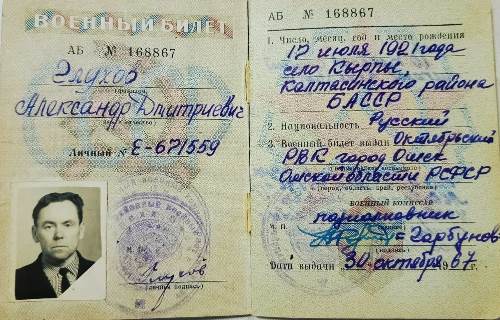 ВОЕННЫЙ БИЛЕТ
АБ № 168867
Глухов
Александр Дмитриевич
Личный № Е-671559
М. П.
Глухов
(личная подпись)
АБ № 168867
1. Число, месяц, год и место рождения
17 июля 1921 года
село Кырпы,
Калтасинского района
БАССР
2. Национальность Русский
3. Военный билет выдан Октябрьский
РВК город Омск
Омской области РСФСР
(город, область, край, республика)
ВОЕННЫЙ КОМИССАР
подполковник
М. П. =Гарбунов
(подпись)
Дата выдачи 30 октября 67